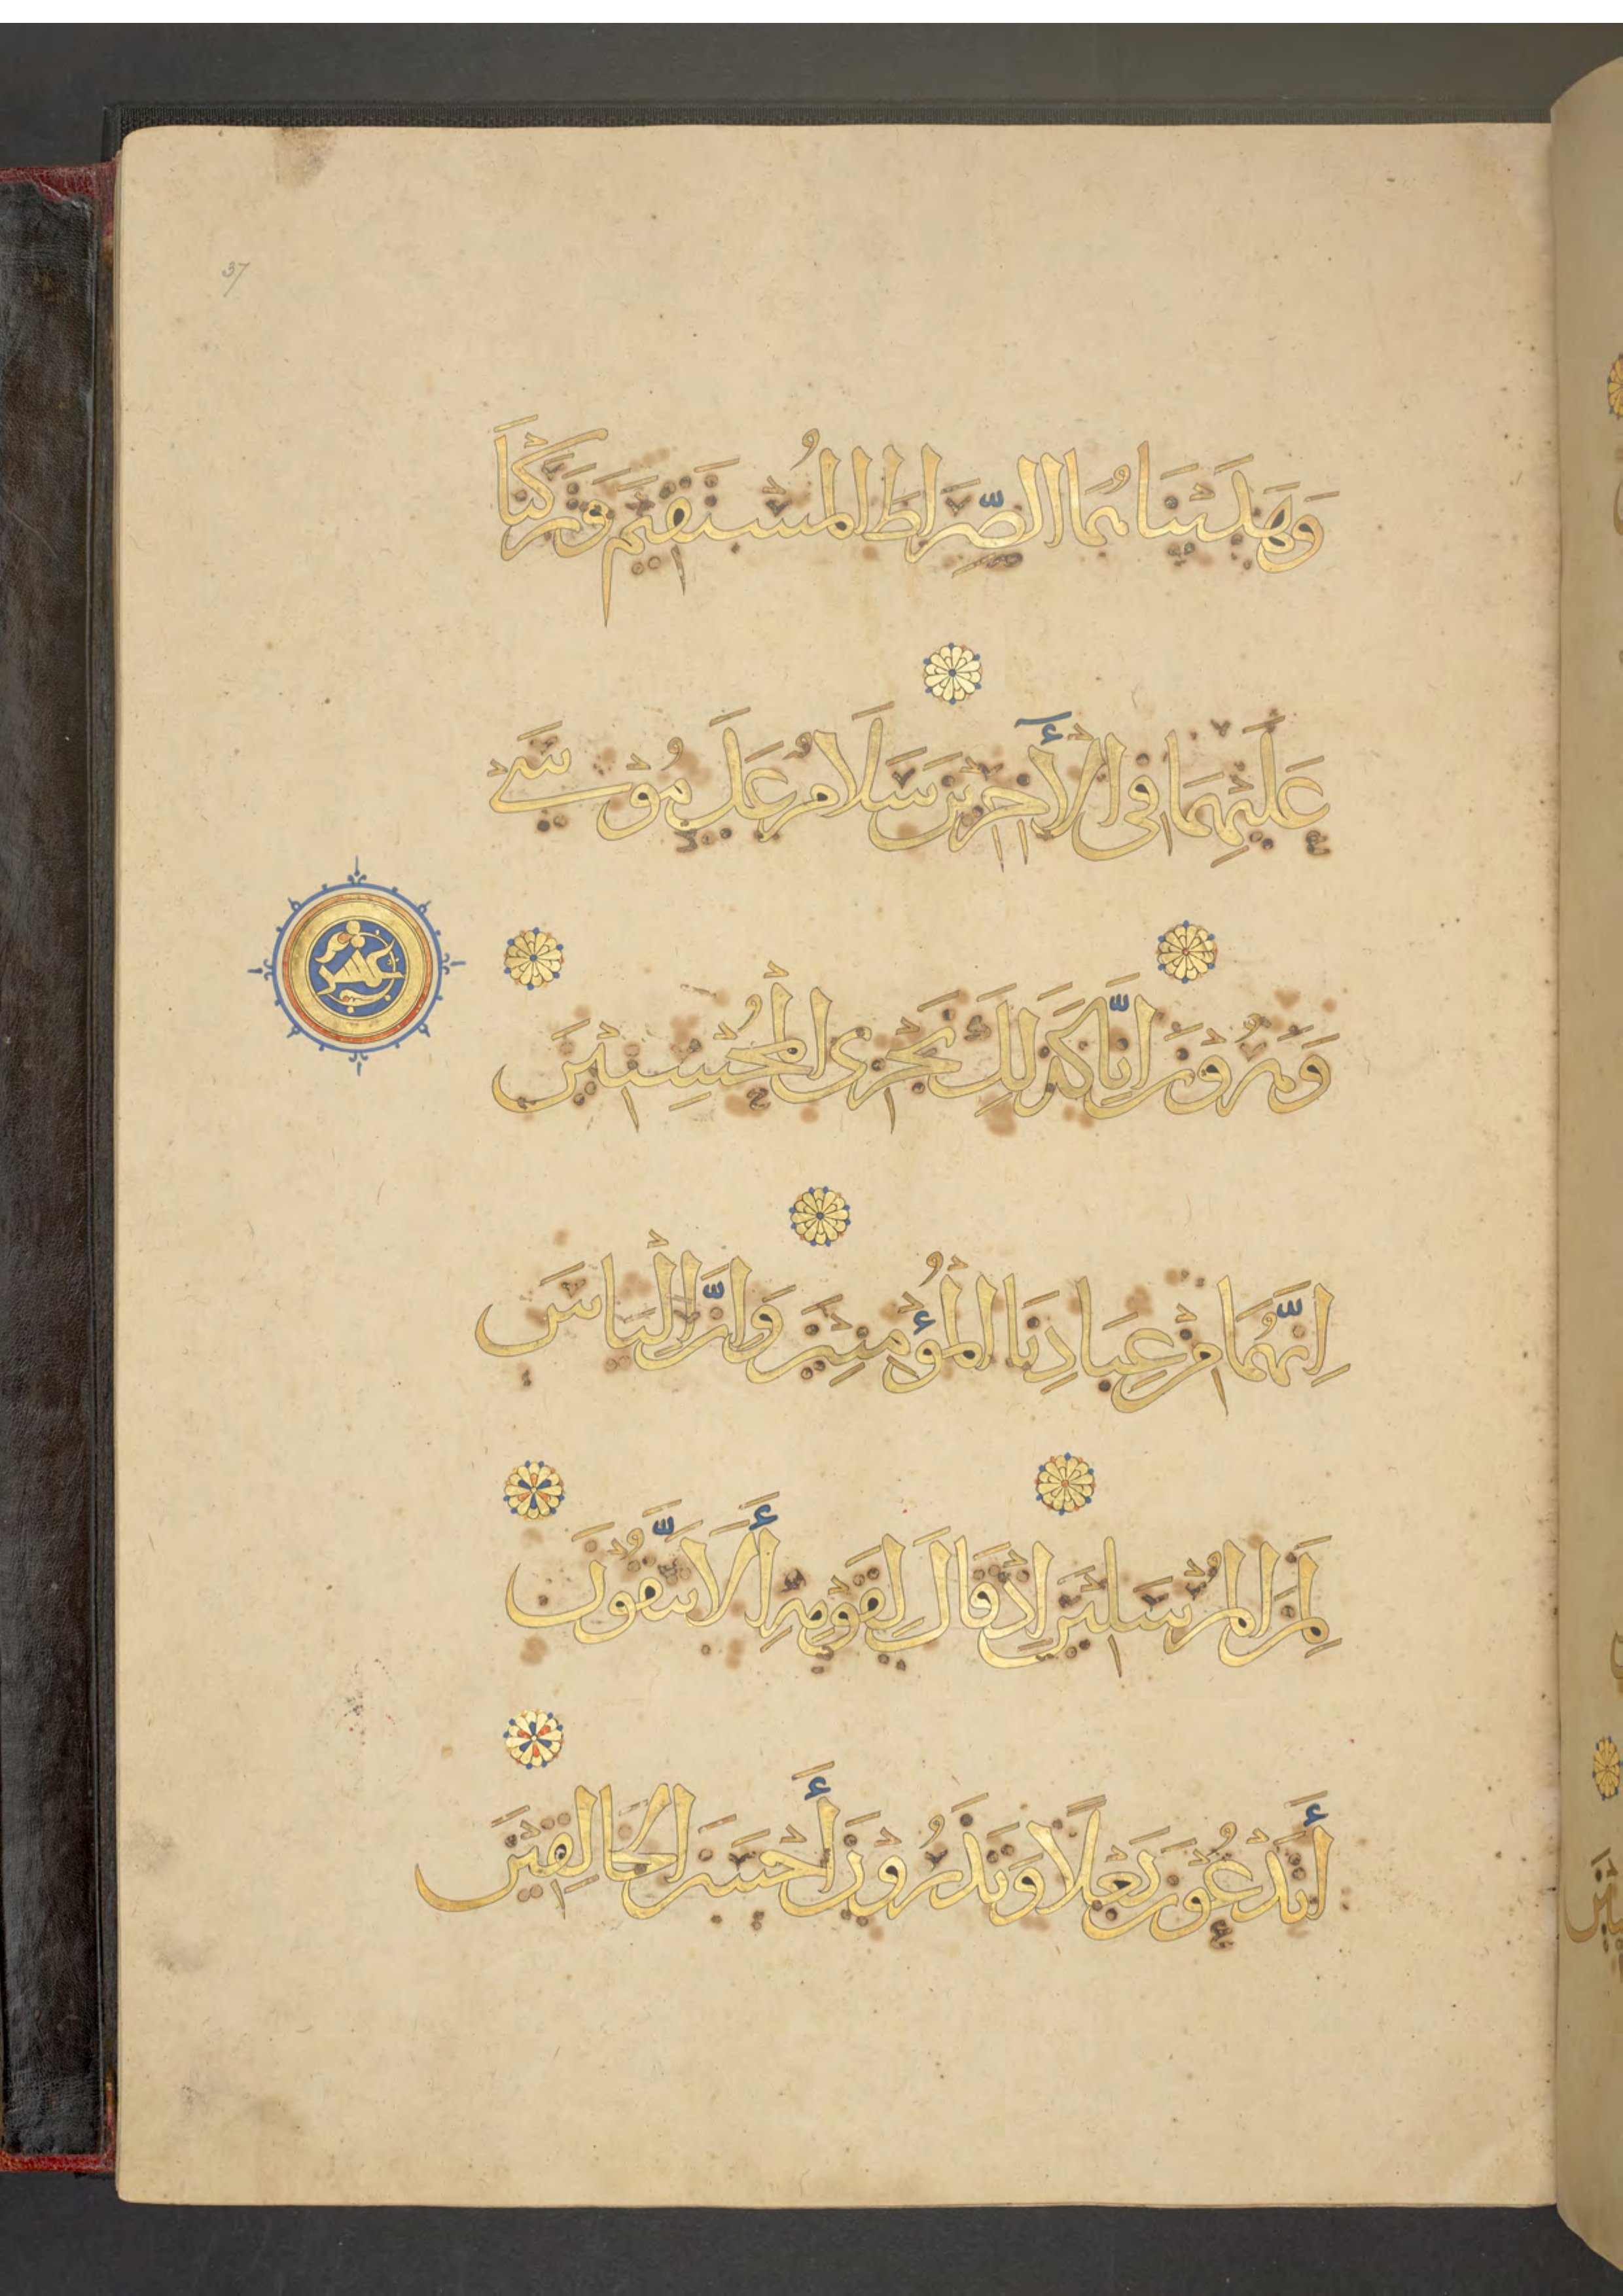 37
وَهَدَيْنَاهُمَا الصِّرَاطَ الْمُسْتَقِيْمَ وَتَرَكْنَا
عَلَيْهِمَا فِى الْأَخِرِيْنَ سَلَامٌ عَلَى مُوْسَى
وَهَرُوْنَ اِنَّا كَذَلِكَ نَجْزِى الْمُحْسِنِيْنَ
عشر
اِنَّهُمَا مِنْ عِبَادِنَا الْمُؤْمِنِيْنَ وَاِنَّ اِلْيَاسَ
لَمِنَ الْمُرْسَلِيْنَ اِذْ قَالَ لِقَوْمِهِ أَلَا تَتَّقُوْنَ
أَتَدْعُوْنَ بَعْلًا وَتَذَرُوْنَ أَحْسَنَ الْخَالِقِيْنَ